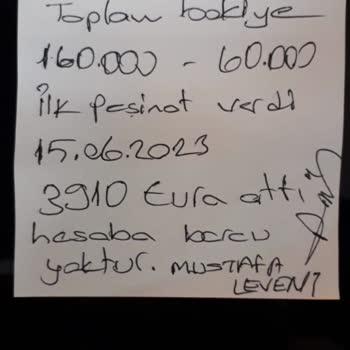 Toplam bakiye
160.000 - 60.000
ilk peşinat verdi
15.06.2023
3910 Eura attı
hesaba borcu
yoktur. MUSTAFA
LEVENT